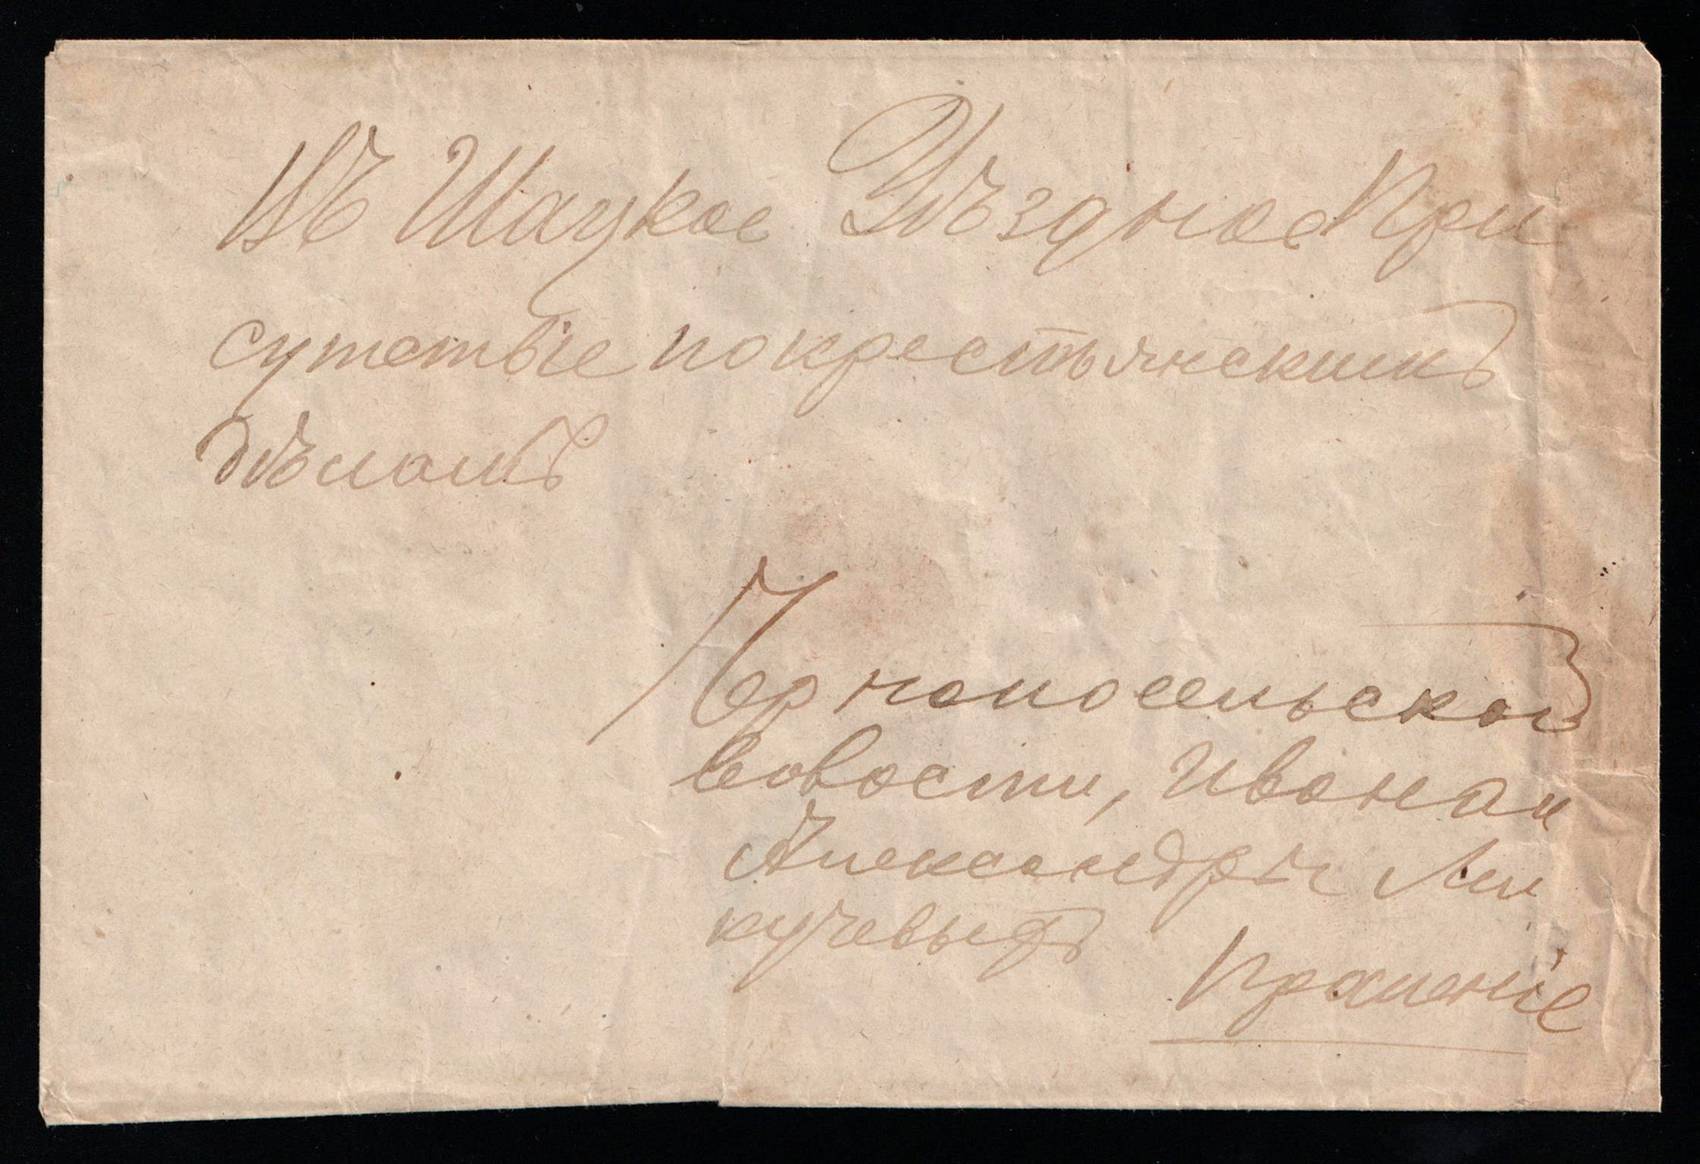 Въ Шацкое Уѣздное При
сутствіе по крестьянскимъ
дѣламъ
Чернослободской
волости, Ивана и
Александры Ми
кучевыхъ
Прошеніе